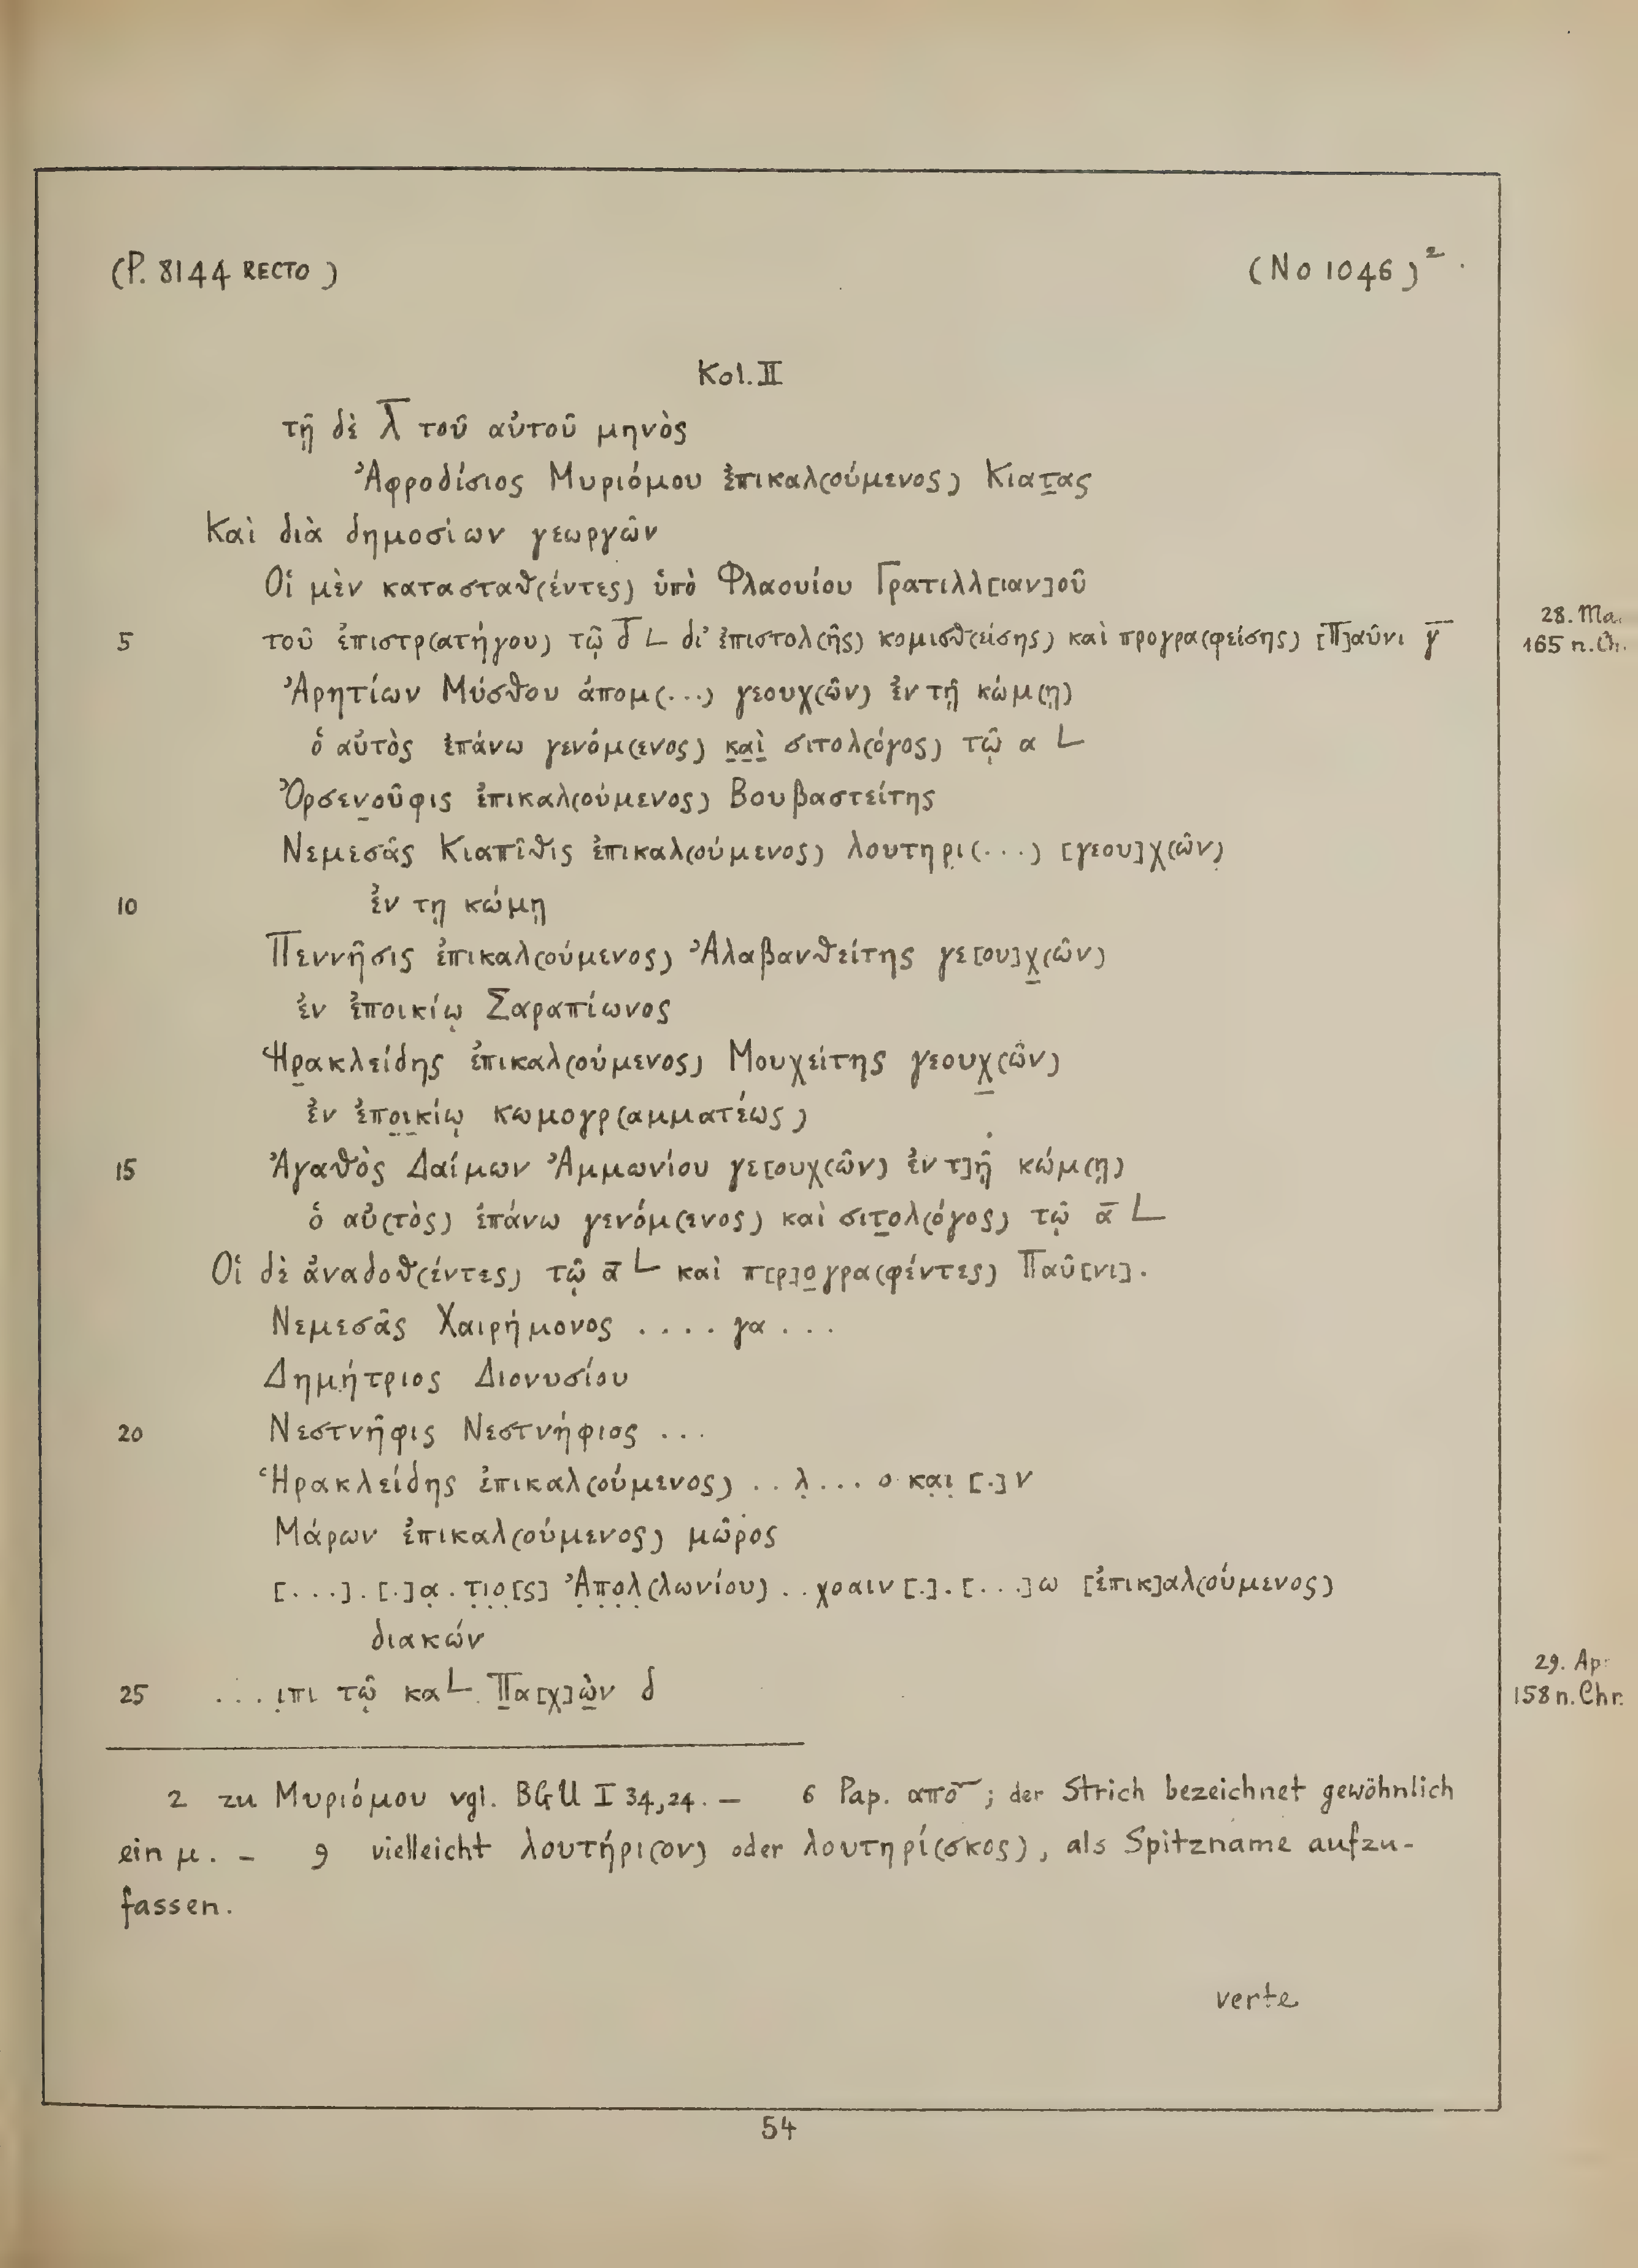 (P. 8144 RECTO) (No 1046)²
Kol. II
τῇ δὲ λ̅ τοῦ αὐτοῦ μηνὸς
Ἀφροδίσιος Μυριόμου ἐπικαλ(ούμενος) Κιατ̣ας
Καὶ διὰ δημοσίων γεωργῶν
Οἱ μὲν κατασταθ(έντες) ὑπὸ Φλαουίου Γρατιλλ[ιαν]οῦ
5 τοῦ ἐπιστρ(ατήγου) τῷ δ̅ L δι' ἐπιστολ(ῆς) κομισθ(είσης) καὶ προγρα(φείσης) [Π]αῦνι γ̅ 28. Ma
165 n. Ch.
Ἀρητίων Μύσθου ἀπομ(...) γεουχ(ῶν) ἐν τῇ κώμ(ῃ)
ὁ αὐτὸς ἐπάνω γενόμ(ενος) κ̣α̣ὶ̣ σιτολ(όγος) τῷ α L
Ὀρσεν̣οῦφις ἐπικαλ(ούμενος) Βουβαστείτης
Νεμεσᾶς Κιαπῖθις ἐπικαλ(ούμενος) λουτηρ̣ι(...) [γεου]χ(ῶν)
10 ἐν τῃ κώμῃ
Πεννῆσις ἐπικαλ(ούμενος) Ἀλαβανθείτης γε[ου]χ̣(ῶν)
ἐν ἐποικίῳ Σαραπίωνος
Ἡρ̣ακλείδης ἐπικαλ(ούμενος) Μουχείτης γεουχ̣(ῶν)
ἐν ἐπο̣ι̣κίῳ κωμογρ(αμματέως)
15 Ἀγαθὸς Δαίμων Ἀμμωνίου γε[ουχ(ῶν) ἐν τ]ῇ κώμ(ῃ)
ὁ αὐ(τὸς) ἐπάνω γενόμ(ενος) καὶ σιτ̣ολ(όγος) τῷ α̅ L
Οἱ δὲ ἀναδοθ(έντες) τῷ α̅ L καὶ π[ρ]ο̣γρα(φέντες) Παῦ[νι].
Νεμεσᾶς Χαιρήμονος .... γα ...
Δημήτριος Διονυσίου
20 Νεστνῆφις Νεστνήφιος ...
Ἡρακλείδης ἐπικαλ(ούμενος) .. λ̣ ... ο κα̣ι̣ [.]ν
Μάρων ἐπικαλ(ούμενος) μῶρος
[...]. [.]α̣. τ̣ι̣ο̣[ς] Ἀ̣π̣ο̣λ̣(λωνίου) .. χοαιν[.]. [...]ω [ἐπικ]αλ(ούμενος)
διακών
25 ... ι̣πι τῷ κα L Π̣α[χ]ὼ̣ν δ 29. Ap
158 n. Chr.
2 zu Μυριόμου vgl. BGU I 34,24. — 6 Pap. απο͞ ; der Strich bezeichnet gewöhnlich
ein μ. — 9 vielleicht λουτήρι(ον) oder λουτηρί(σκος), als Spitzname aufzu-
fassen.
verte
54